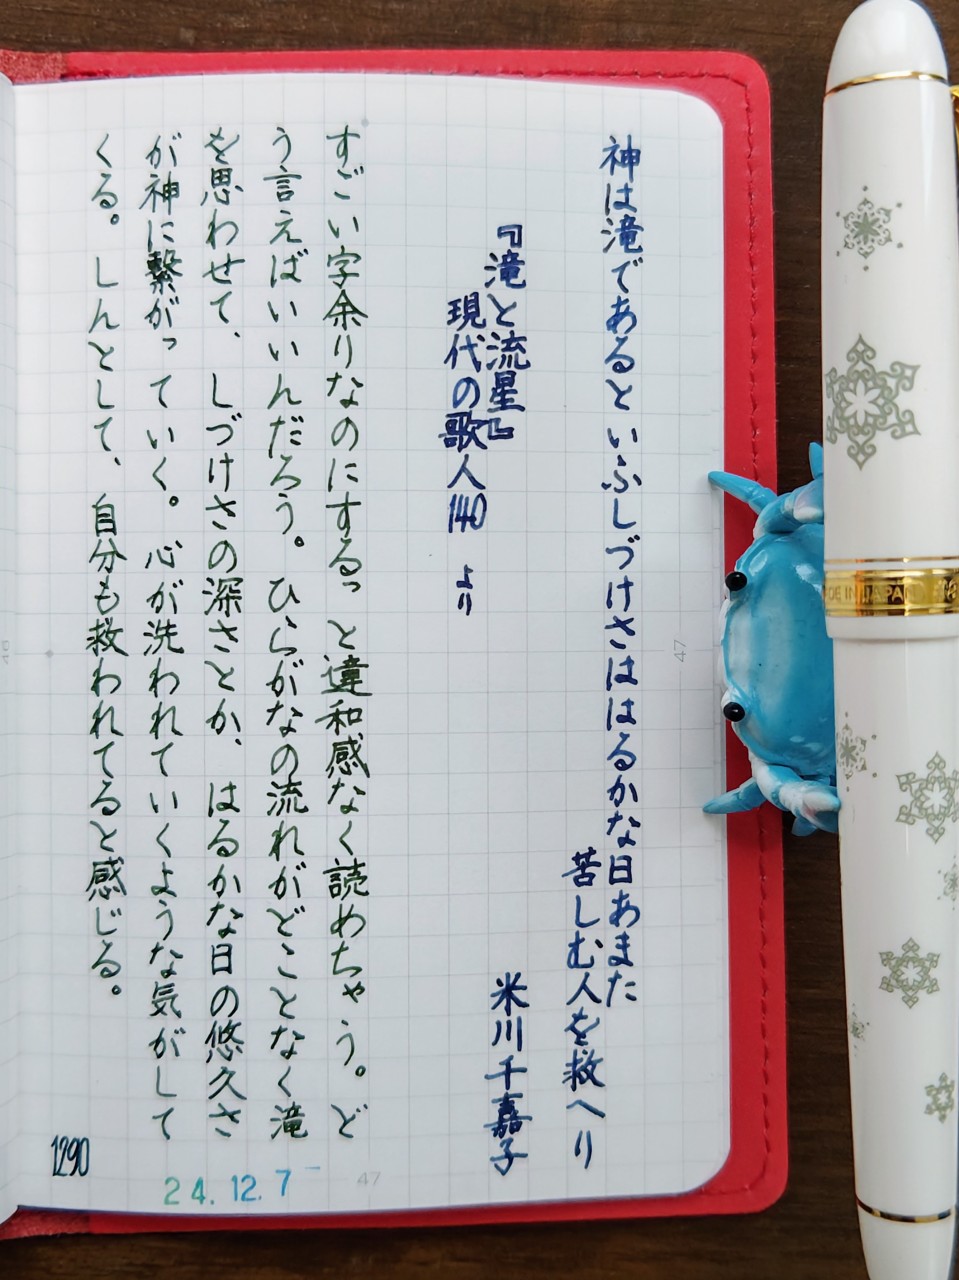 神は滝であるといふしづけさははるかな日あまた
苦しむ人を救へり
米川千嘉子
『滝と流星』
現代の歌人140 より
すごい字余りなのにするっと違和感なく読めちゃう。ど
う言えばいいんだろう。ひらがなの流れがどことなく滝
を思わせて、しづけさの深さとか、はるかな日の悠久さ
が神に繋がっていく。心が洗われていくような気がして
くる。しんとして、自分も救われてると感じる。
1290
24.12.7
47
47
46
MADE IN JAPAN